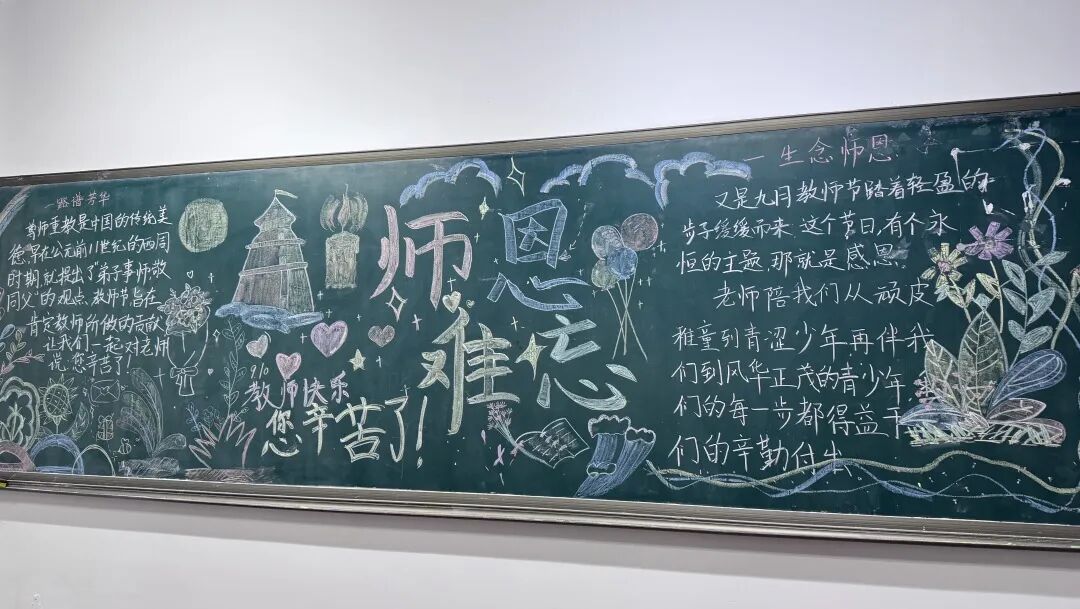 一路谱芳华
尊师重教是中国的传统美
德,早在公元前11世纪的西周
时期,就提出了"弟子事师,敬
同父"的观点,教师节旨在
肯定教师所做的贡献
让我们一起对老师
说:您辛苦了!
师恩
难忘
9/10
教师快乐
您辛苦了!
一生念师恩
又是九月教师节踏着轻盈的
步子缓缓而来.这个节日,有个永
恒的主题,那就是感恩.
老师陪我们从顽皮
稚童到青涩少年再伴我
们到风华正茂的青少年
们的每一步都得益于
们的辛勤付出